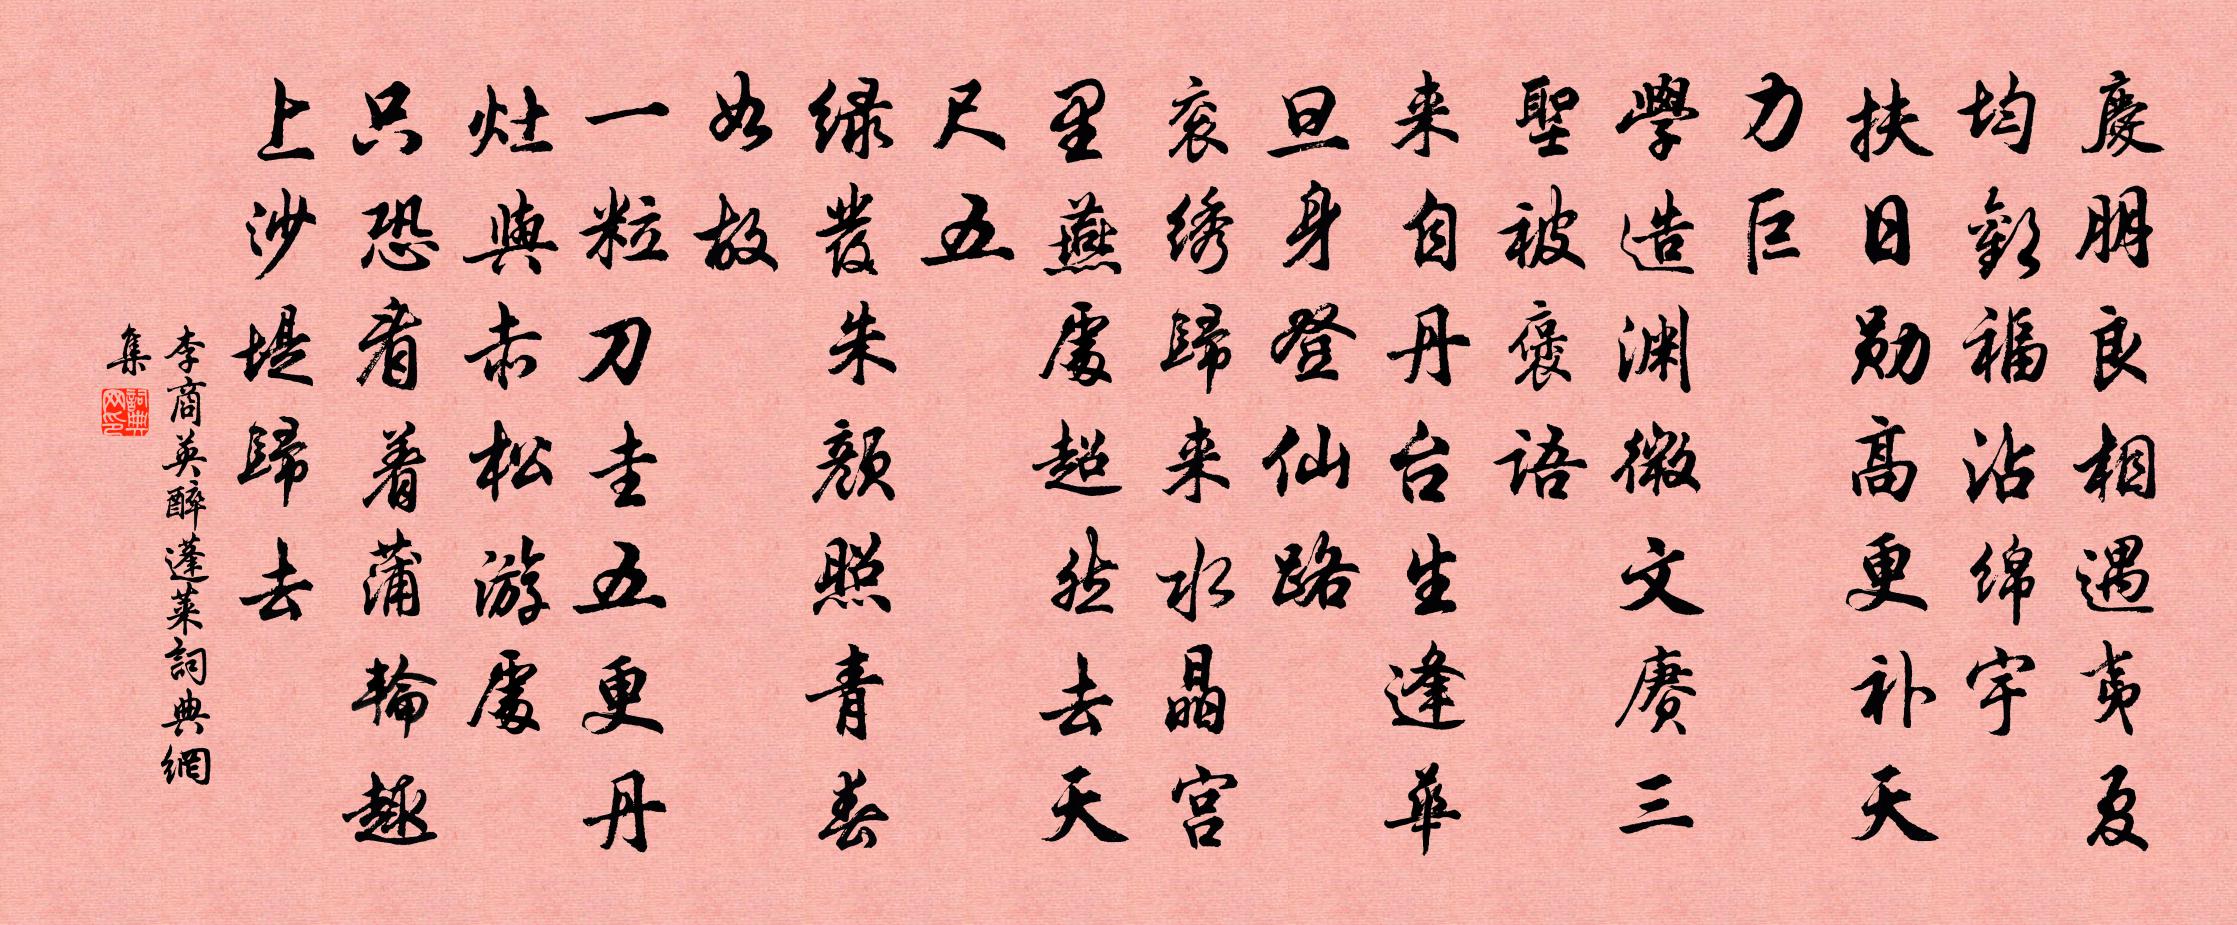 慶朋良相遇夷夏
均歡福沾绵宇
扶日勋高更补天
力巨
學造渊微文赓三
聖被褒语
来自丹台生逢華
旦身登仙路
衮绣歸来水晶宫
里燕處超然去天
尺五
绿發朱颜照青春
如故
一粒刀圭五更丹
灶與赤松游處
只恐看着蒲輪趣
上沙堤歸去
李商英醉蓬莱詞典網
集
詞典
网印